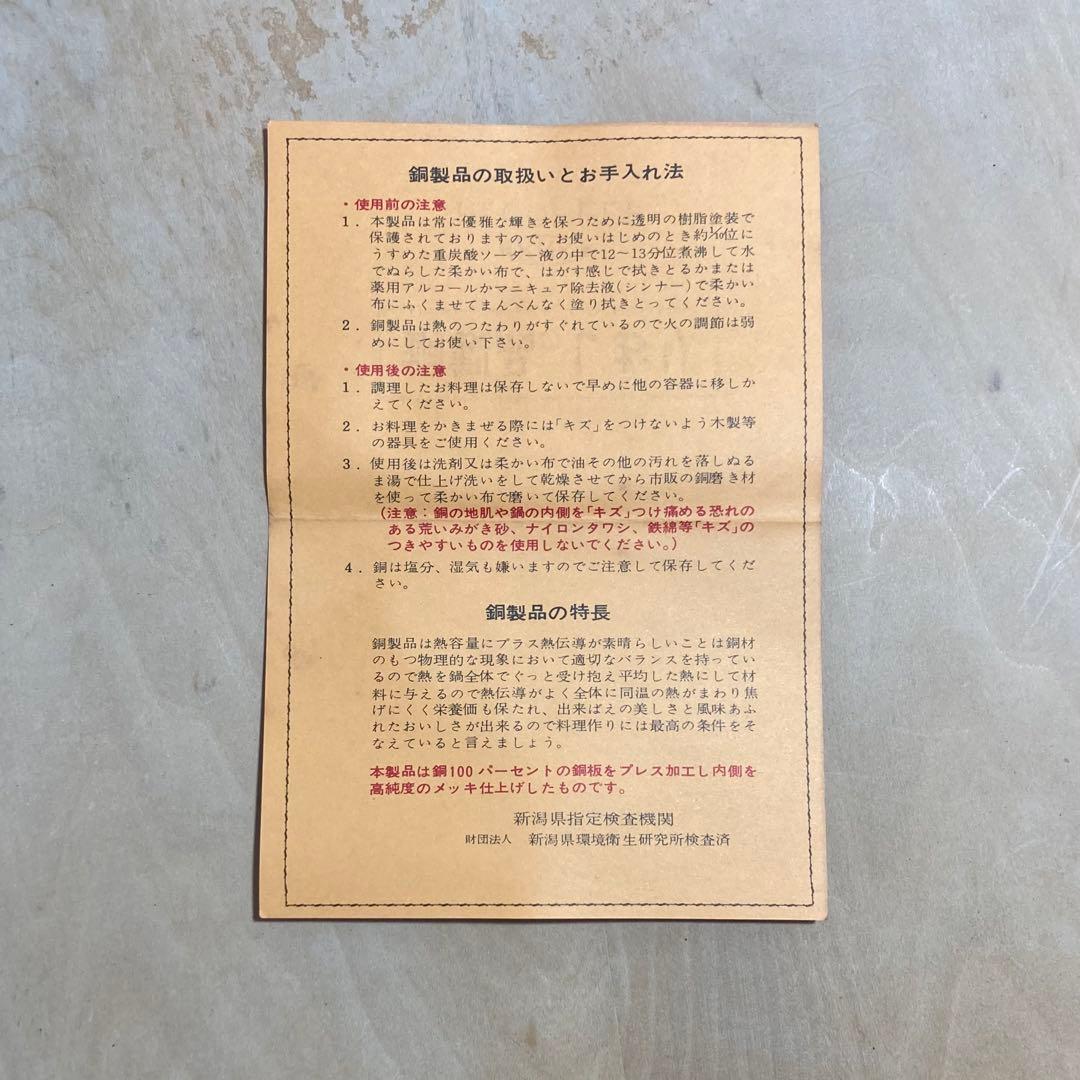 銅製品の取扱いとお手入れ法
・使用前の注意
1. 本製品は常に優雅な輝きを保つために透明の樹脂塗装で
保護されておりますので、お使いはじめのとき約1/10位に
うすめた重炭酸ソーダー液の中で12〜13分位煮沸して水
でぬらした柔かい布で、はがす感じで拭きとるかまたは
薬用アルコールかマニキュア除去液(シンナー)で柔かい
布にふくませてまんべんなく塗り拭きとってください。
2. 銅製品は熱のつたわりがすぐれているので火の調節は弱
めにしてお使い下さい。
・使用後の注意
1. 調理したお料理は保存しないで早めに他の容器に移しか
えてください。
2. お料理をかきまぜる際には「キズ」をつけないよう木製等
の器具をご使用ください。
3. 使用後は洗剤又は柔かい布で油その他の汚れを落しぬる
ま湯で仕上げ洗いをして乾燥させてから市販の銅磨き材
を使って柔かい布で磨いて保存してください。
(注意：銅の地肌や鍋の内側を「キズ」つけ痛める恐れの
ある荒いみがき砂、ナイロンタワシ、鉄綿等「キズ」の
つきやすいものを使用しないでください。)
4. 銅は塩分、湿気も嫌いますのでご注意して保存してくだ
さい。
銅製品の特長
銅製品は熱容量にプラス熱伝導が素晴らしいことは銅材
のもつ物理的な現象において適切なバランスを持ってい
るので熱を鍋全体でぐっと受け抱え平均した熱にして材
料に与えるので熱伝導がよく全体に同温の熱がまわり焦
げにくく栄養価も保たれ、出来ばえの美しさと風味あふ
れたおいしさが出来るので料理作りには最高の条件をそ
なえていると言えましょう。
本製品は銅100パーセントの銅板をプレス加工し内側を
高純度のメッキ仕上げしたものです。
新潟県指定検査機関
財団法人 新潟県環境衛生研究所検査済